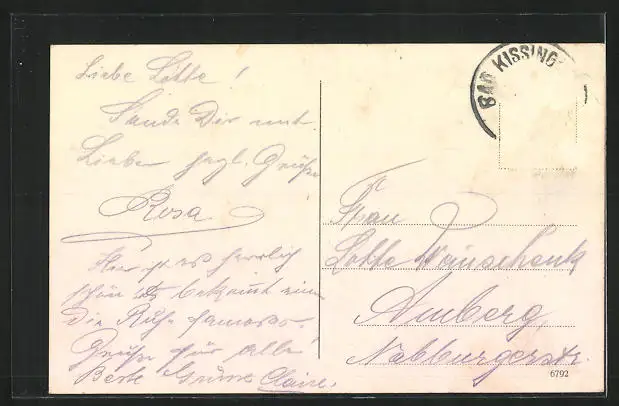 Liebe Lotte!
Sende Dir nur
Liebe herzl. Grüße
Rosa
Hier ist es herrlich
schön es bekommt einem
Die Ruhe famos.
Grüße für alle
Beste Grüsse Claire.
BAD KISSING
Frau
Lotte Weinschenk
Amberg,
Nabburgerstr.
6792